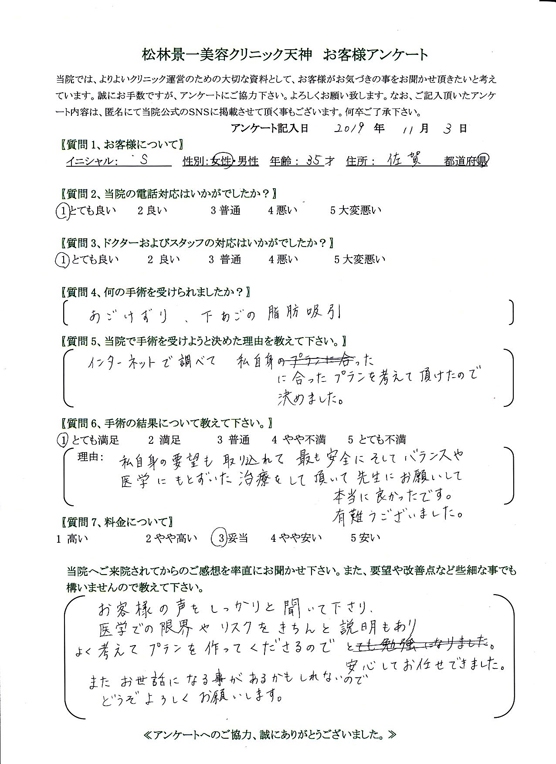 松林景一美容クリニック天神　お客様アンケート
当院では、よりよいクリニック運営のための大切な資料として、お客様がお気づきの事をお聞かせ頂きたいと考え
ています。誠にお手数ですが、アンケートにご協力下さい。よろしくお願い致します。なお、ご記入頂いたアンケ
ート内容は、匿名にて当院公式のSNSに掲載させて頂く事もございます。何卒ご了承下さい。
アンケート記入日　2019 年 11 月 3 日
〖質問1、お客様について〗
イニシャル: S　性別:女性・男性　年齢: 35才　住所: 佐賀　都道府県
〖質問2、当院の電話対応はいかがでしたか?〗
1とても良い　2 良い　3 普通　4悪い　5大変悪い
〖質問3、ドクターおよびスタッフの対応はいかがでしたか?〗
1とても良い　2 良い　3 普通　4悪い　5大変悪い
〖質問4、何の手術を受けられましたか?〗
あごけずり、下あごの脂肪吸引
〖質問5、当院で手術を受けようと決めた理由を教えて下さい。〗
インターネットで調べて　私自身のプランに合った
に合ったプランを考えて頂けたので
決めました。
〖質問6、手術の結果について教えて下さい。〗
1とても満足　2 満足　3 普通　4 やや不満　5 とても不満
理由:　私自身の要望も取り込れて最も安全にそしてバランスや
医学にもとずいた治療をして頂いて先生にお願いして
本当に良かったです。
有難うございました。
〖質問7、料金について〗
1 高い　2 やや高い　3妥当　4 やや安い　5 安い
当院へご来院されてからのご感想を率直にお聞かせ下さい。また、要望や改善点など些細な事でも
構いませんので教えて下さい。
お客様の声をしっかりと聞いて下さり、
医学での限界やリスクをきちんと説明もあり
よく考えてプランを作ってくださるので とても勉強になりました。
安心してお任せできました。
またお世話になる事があるかもしれないので
どうぞよろしくお願いします。
≪アンケートへのご協力、誠にありがとうございました。≫